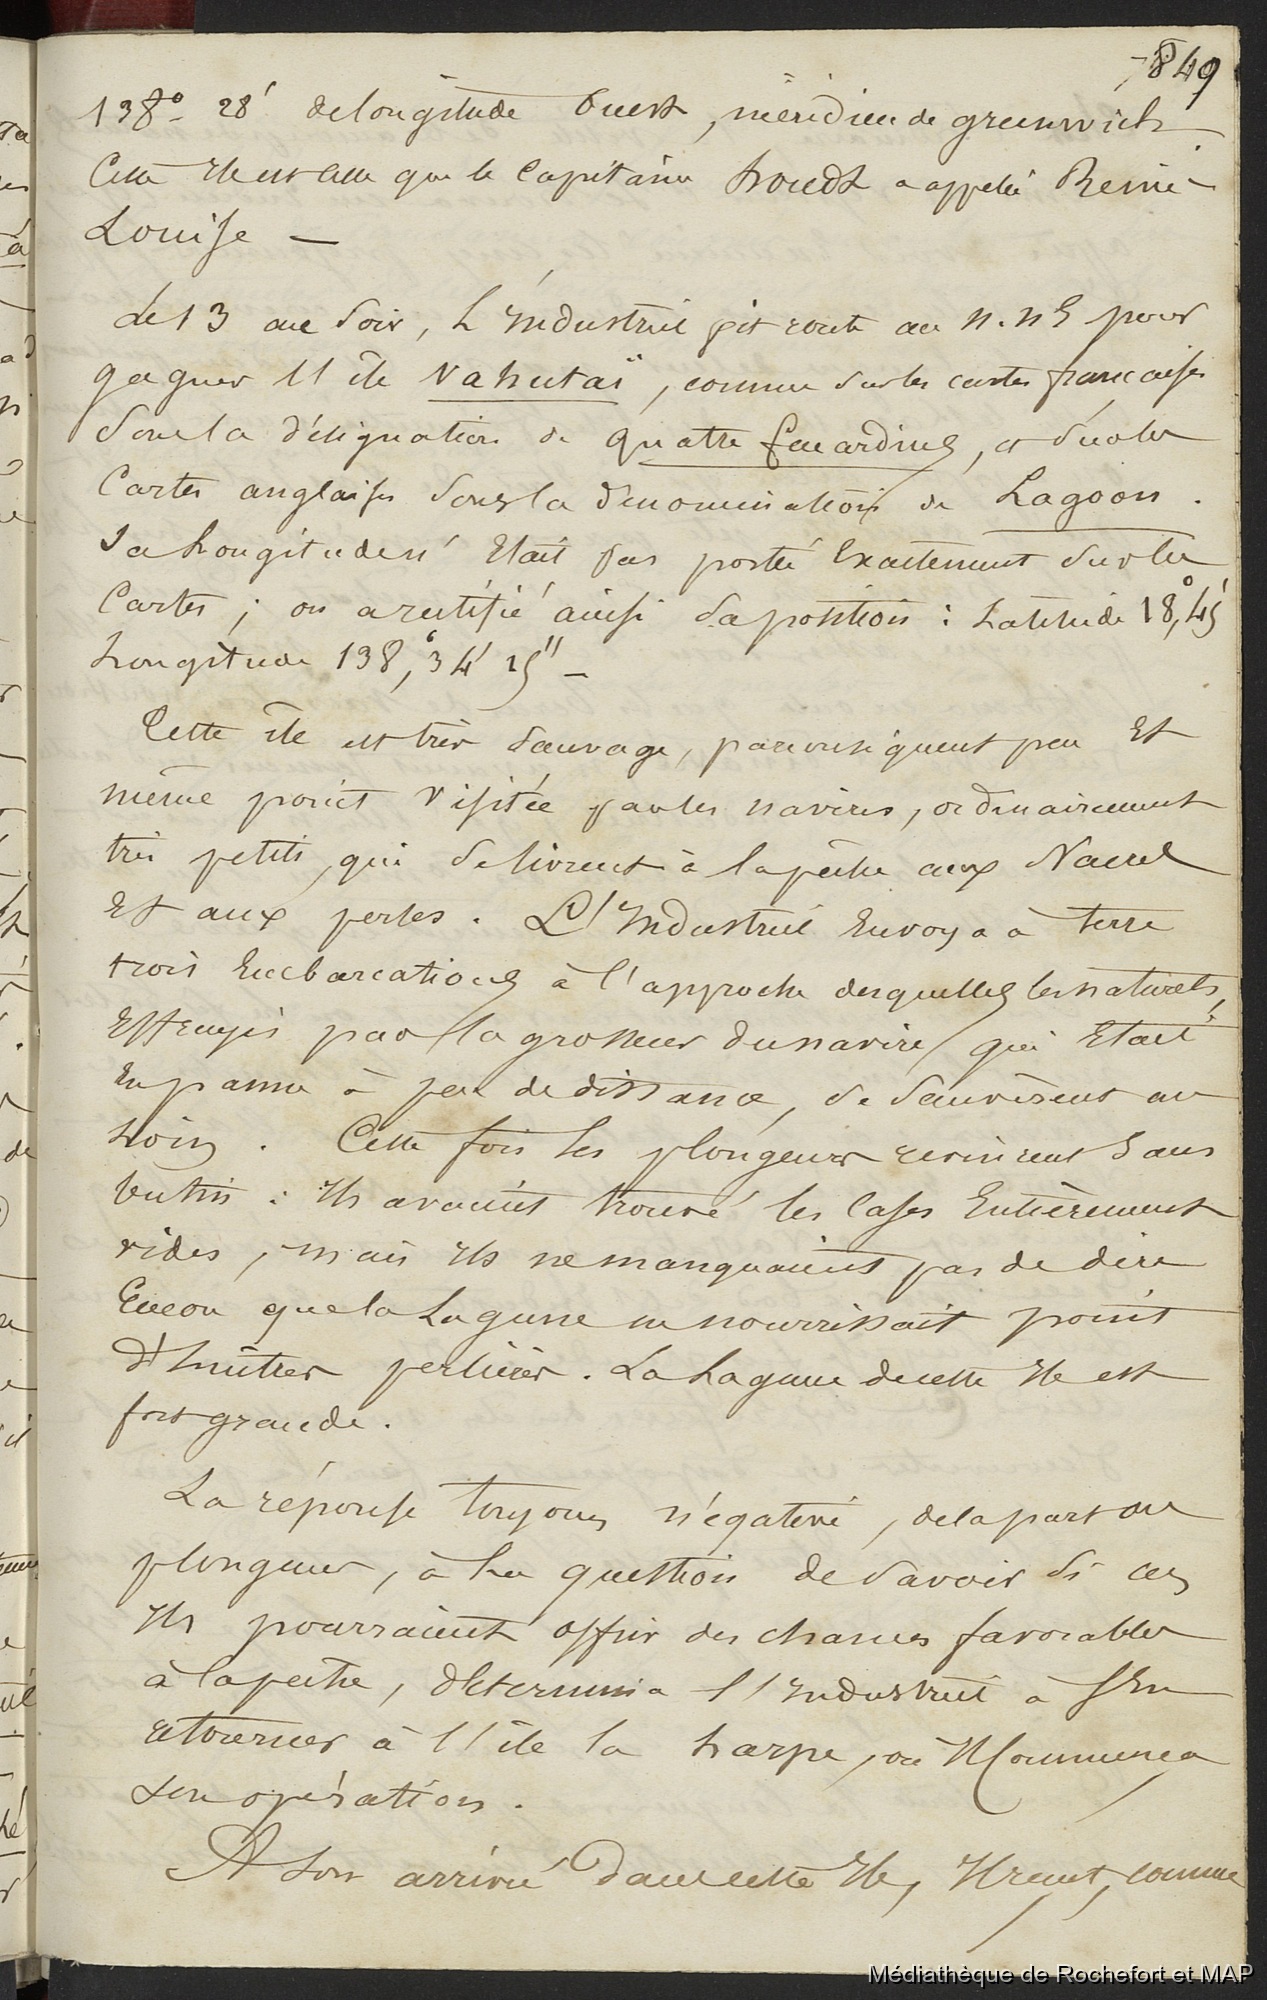 849
138° 28' de longitude Ouest, méridien de greenwich
Cette Ile est celle que le Capitaine a appelé Reine
Louise —
Le 13 au Soir, L'Industriel fit route au N. NE pour
gagner l'île Vahutaï, connue sur les cartes françaises
Sous la désignation de quatre facardins, et sur les
Cartes anglaises sous la dénomination de Lagoon.
Sa Longitude n'Etait pas portée Exactement sur les
Cartes ; on a rectifié ainsi sa position : Latitude 18,° 45'
Longitude 138,° 34' 25" —
Cette île est très sauvage, par conséquent peu Et
même point Visitée par les navires, ordinairement
très petits, qui se livrent à la pêche aux Nacres
Et aux perles. L'Industriel Envoya à terre
trois Embarcations à l'approche desquelles les naturels,
Effrayés par la grosseur du navire qui Etait
En panne à peu de distance, se sauvèrent au
Loin. Cette fois les plongeurs revinrent Sans
butin : Ils avaient trouvé les Cases Entièrement
vides, mais Ils ne manquaient pas de dire
Encore que la Lagune ne nourrissait point
d'huîtres perlières. La Lagune de cette Ile est
fort grande.
La réponse toujours négative, de la part des
plongeurs, à la question de savoir si ces
Iles pourraient offrir des chances favorables
à la pêche, détermina l'Industriel à s'en
retourner à l'île la harpe, où Il Commença
son opération.
A son arrivée dans cette Ile, Il reçut, comme
Médiathèque de Rochefort et MAP